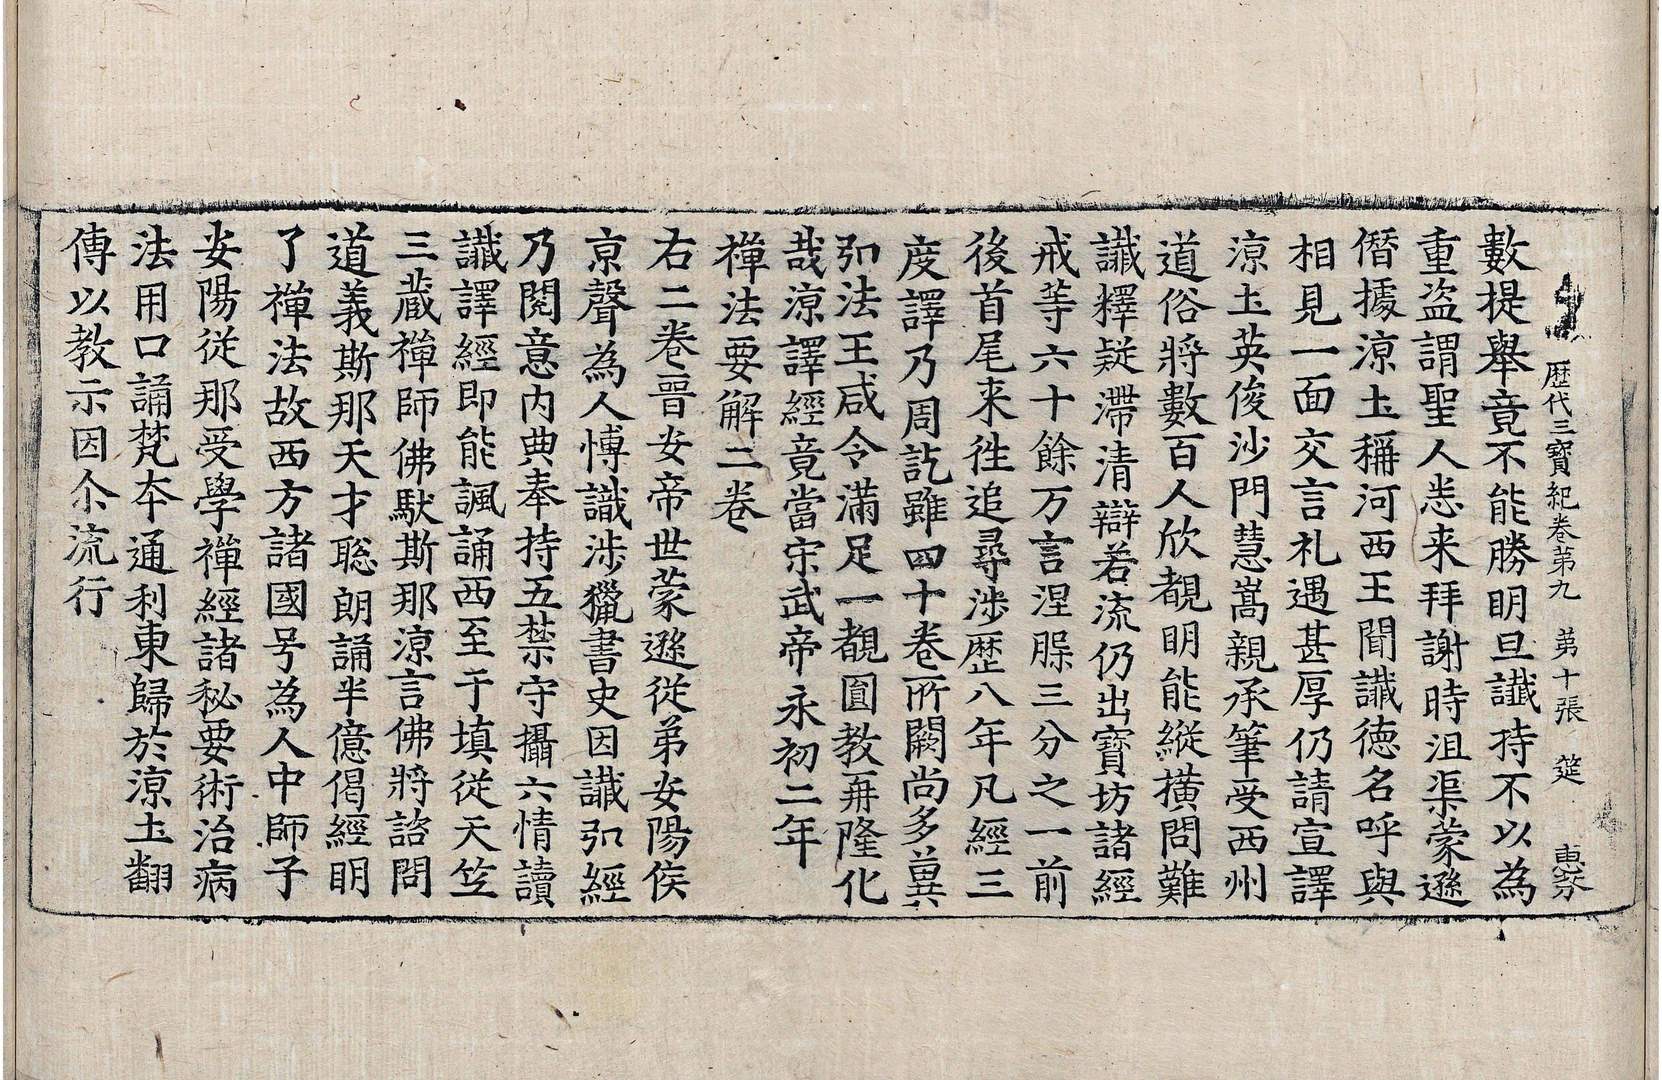 歷代三寶紀卷第九 第十張 筵 惠芬
數提舉竟不能勝明旦讖持不以為
重盗謂聖人悉来拜謝時沮渠蒙遜
僭據涼土稱河西王聞讖徳名呼與
相見一面交言礼遇甚厚仍請宣譯
涼土英俊沙門慧嵩親承筆受西州
道俗將數百人欣覩明能縱横問難
讖釋疑滯清辯若流仍出寶坊諸經
戒等六十餘万言涅𦙁三分之一前
後首尾来徃追尋涉歴八年凡經三
度譯乃周訖雖四十卷所闕尚多冀
弘法王咸令滿足一覩圓教再隆化
哉涼譯經竟當宋武帝永初二年
禪法要解二卷
右二卷晉安帝世蒙遜從弟安陽侯
京聲為人愽識涉獵書史因讖弘經
乃閱意内典奉持五禁守攝六情讀
讖譯經即能諷誦西至于填從天竺
三蔵禪師佛馱斯那涼言佛將諮問
道義斯那天才聡朗誦半億偈經明
了禪法故西方諸國号為人中師子
安陽從那受學禪經諸秘要術治病
法用口誦梵夲通利東歸於涼土翻
傳以教示因尒流行